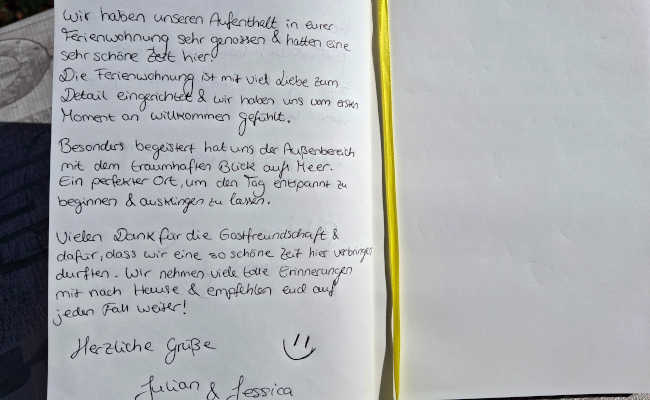 Wir haben unseren Aufenthalt in eurer
Ferienwohnung sehr genossen & hatten eine
sehr schöne Zeit hier!
Die Ferienwohnung ist mit viel Liebe zum
Detail eingerichtet & wir haben uns vom ersten
Moment an willkommen gefühlt.
Besonders begeistert hat uns der Außenbereich
mit dem traumhaften Blick aufs Meer.
Ein perfekter Ort, um den Tag entspannt zu
beginnen & ausklingen zu lassen.
Vielen Dank für die Gastfreundschaft &
dafür, dass wir eine so schöne Zeit hier verbringen
durften. Wir nehmen viele tolle Erinnerungen
mit nach Hause & empfehlen euch auf
jeden Fall weiter!
Herzliche Grüße
Julian & Jessica